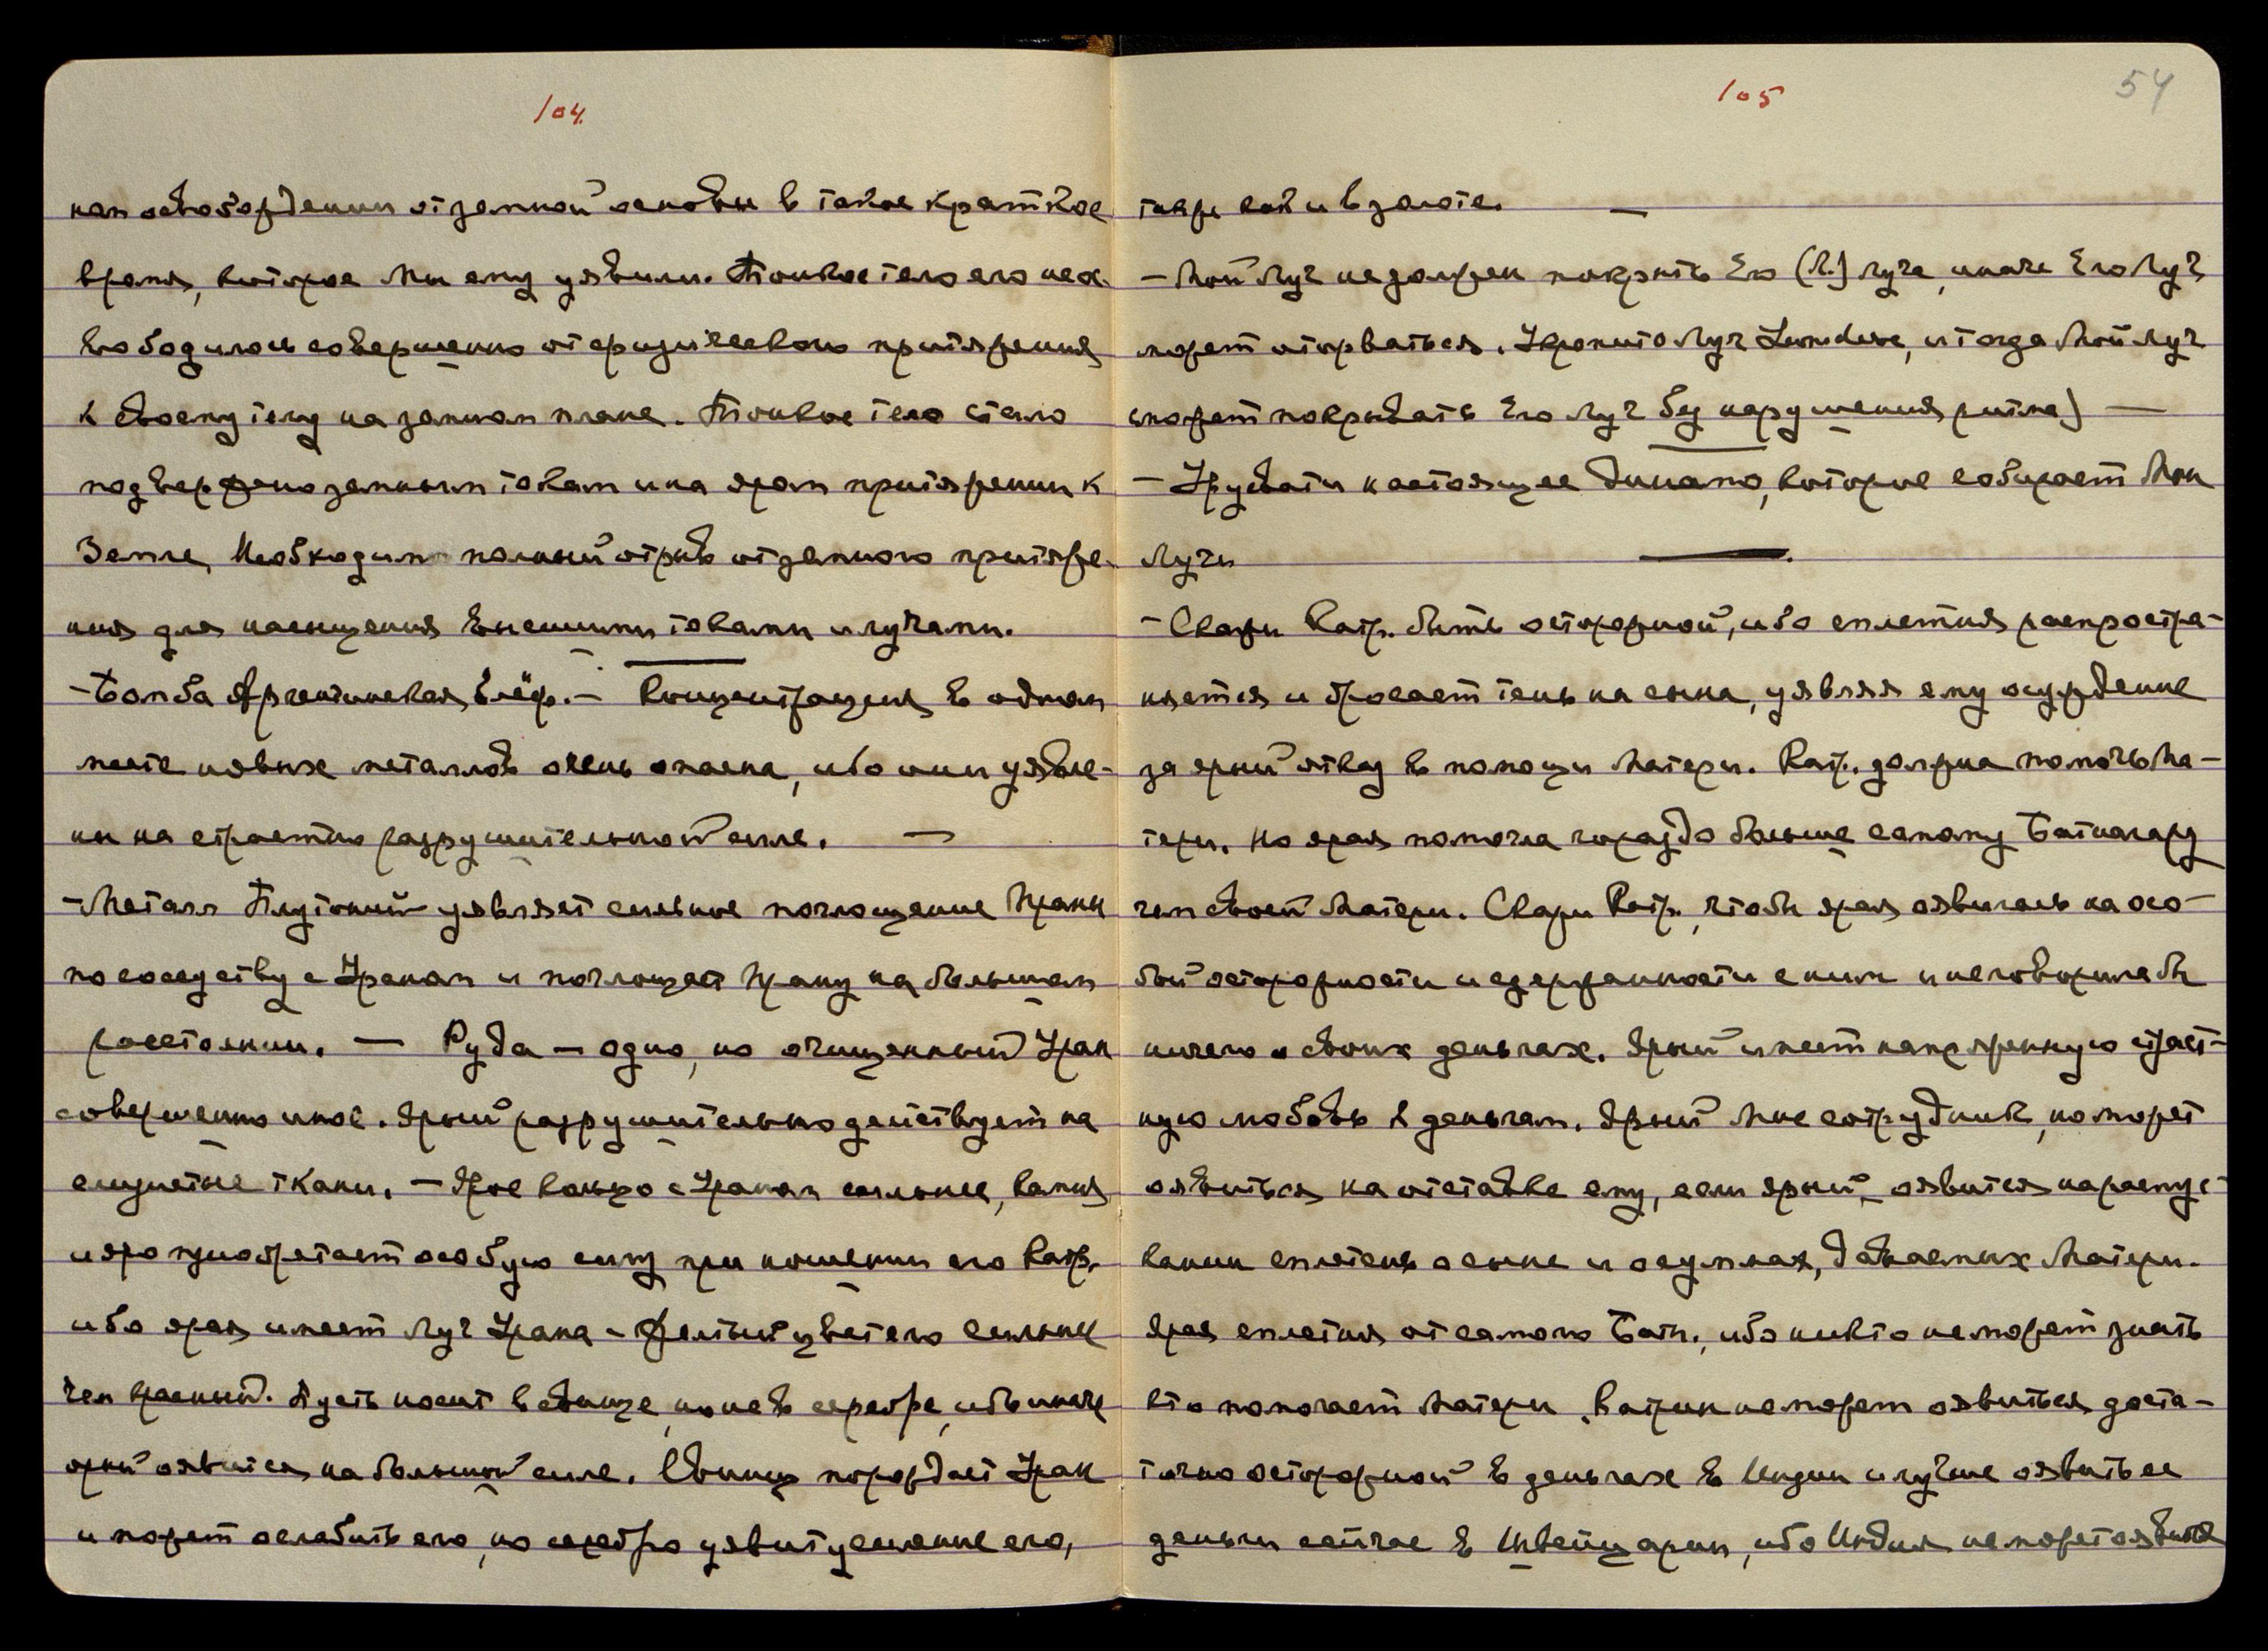 104.
ном освобождении от земной основы в такое краткое
время, которое Мы ему уявили. Тонкое тело его не ос-
вободилось совершенно от физического притяжения
к своему телу на земном плане. Тонкое тело стало
подвержено земным токам и на яром притяжении к
Земле. Необходим полный отрыв от земного притяже-
ния для насыщения внешними токами и лучами.
- Бомба Аргентинская блеф. - Концентрация в одном
месте новых металлов очень опасна, ибо они уявле-
ны на страстно разрушительной силе. —
- Металл Плутоний уявляет сильное поглощение Праны
по соседству с Ураном и поглощает Прану на большом
расстоянии. — Руда - одно, но очищенный Уран
совершенно иное. Ярый разрушительно действует на
слизистые ткани. - Ярое кольцо с Ураном сильнее, камня
и яро приобретает особую силу при ношении его Катр.
ибо ярая имеет луч Урана - Желтый цвет его сильнее
чем красный. Пусть носит в свинце, но не в серебре, ибо иначе
ярый оявится на большой силе. Свинец порождает Уран
и может ослабить его, но серебро уявит усиление его,
105
54
также как и в золоте. —
- Мой Луч не должен покрыть Его (Л.) луча, иначе Его Луч
может оторваться. Укрепит Луч и тогда Мой луч
сможет покрывать Его луч без нарушения ритма) —
- Урусвати настоящее динамо, которое собирает Мои
Лучи —
- Скажи Катр. быть осторожной, ибо сплетня распростра-
няется и бросает тень на сына, уявляя ему осуждение
за ярый отказ в помощи Матери. Катр. должна помочь Ма-
тери. Но ярая помогла гораздо больше самому
чем своей Матери. Скажи Катр., чтобы ярая оявилась на осо-
бой осторожности и сдержанности с ним и не говорила бы
ничего о своих деньгах. Ярый имеет напряженную страст-
ную любовь к деньгам. Ярый Мне сотрудник, но может
оявиться на отставке ему, если ярый оявится на распус-
кании сплетень о сыне и о суммах, даваемых Матери.
Ярая сплетня от самого Батн., ибо никто не может знать
кто помогает Матери. Катрин не может оявиться доста-
точно осторожной в деньгах в Индии и лучше оявить ее
деньги сейчас в Швейцарии, ибо Индия не может оявиться